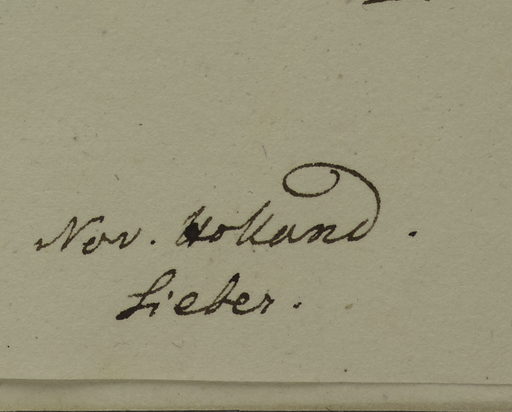 Nov. Holland.
Sieber.